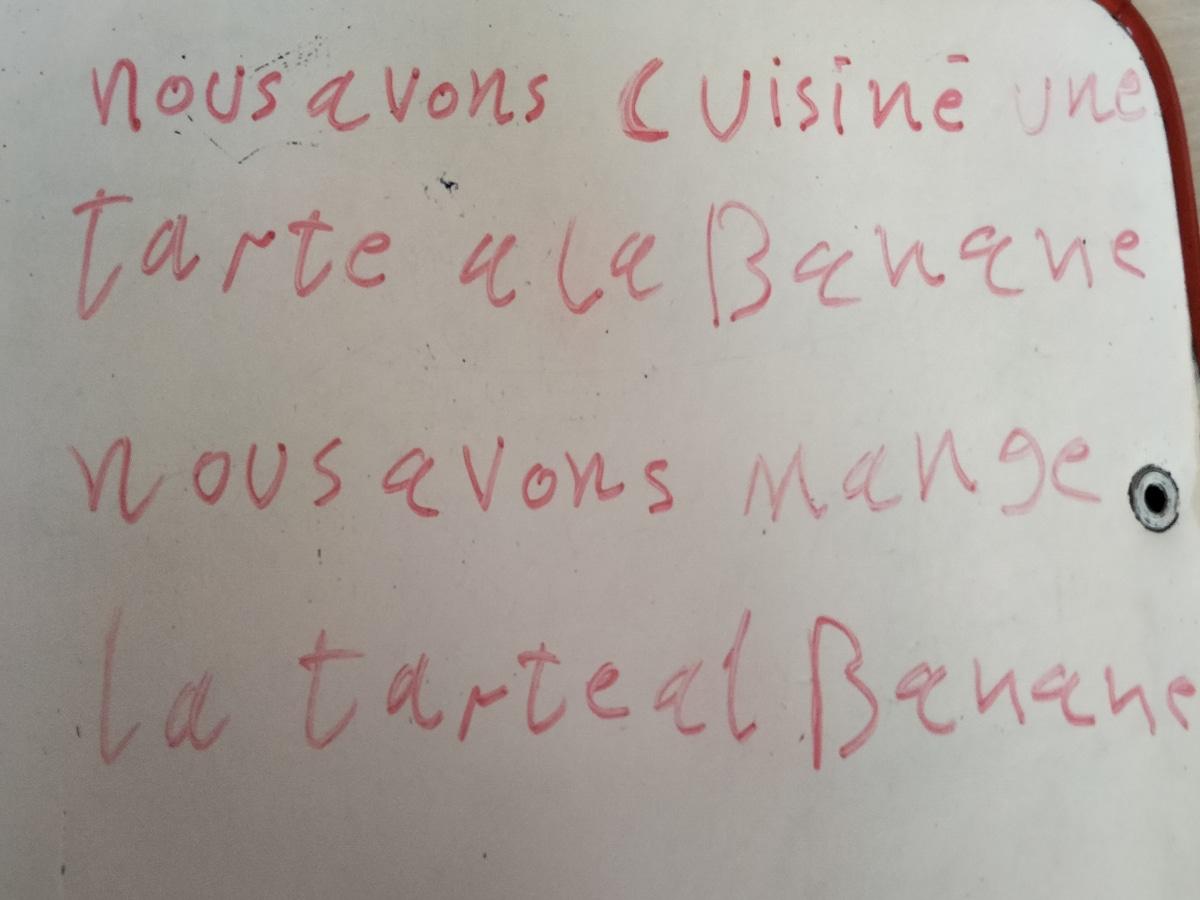 nous avons cuisinē une
tarte a la Banane
nous avons mange
la tarte al Banane